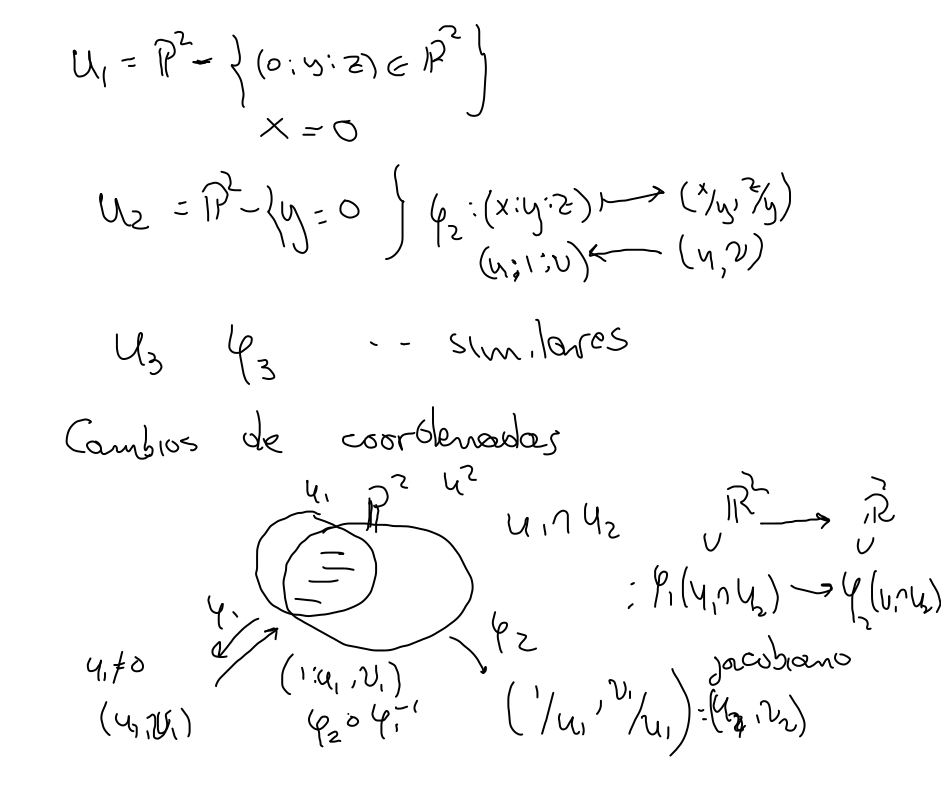 U₁ = ℙ² - {(0:y:z) ∈ ℙ²}
x = 0
U₂ = ℙ² - {y = 0} φ₂ : (x:y:z) ↦ (x/y, z/y)
(u:1:v) ← (u,v)
U₃ φ₃ -- similares
Cambios de coordenadas
U₁ ℙ² U²
U₁∩U₂ ℝ² → ℝ²
∪ ∪
: φ₁(U₁∩U₂) → φ₂(U₁∩U₂)
φ₁ φ₂
u₁≠0 (1:u₁,v₁) jacobiano
(u₁,v₁) φ₂∘φ₁⁻¹ (1/u₁, v₁/u₁) = (u₂,v₂)